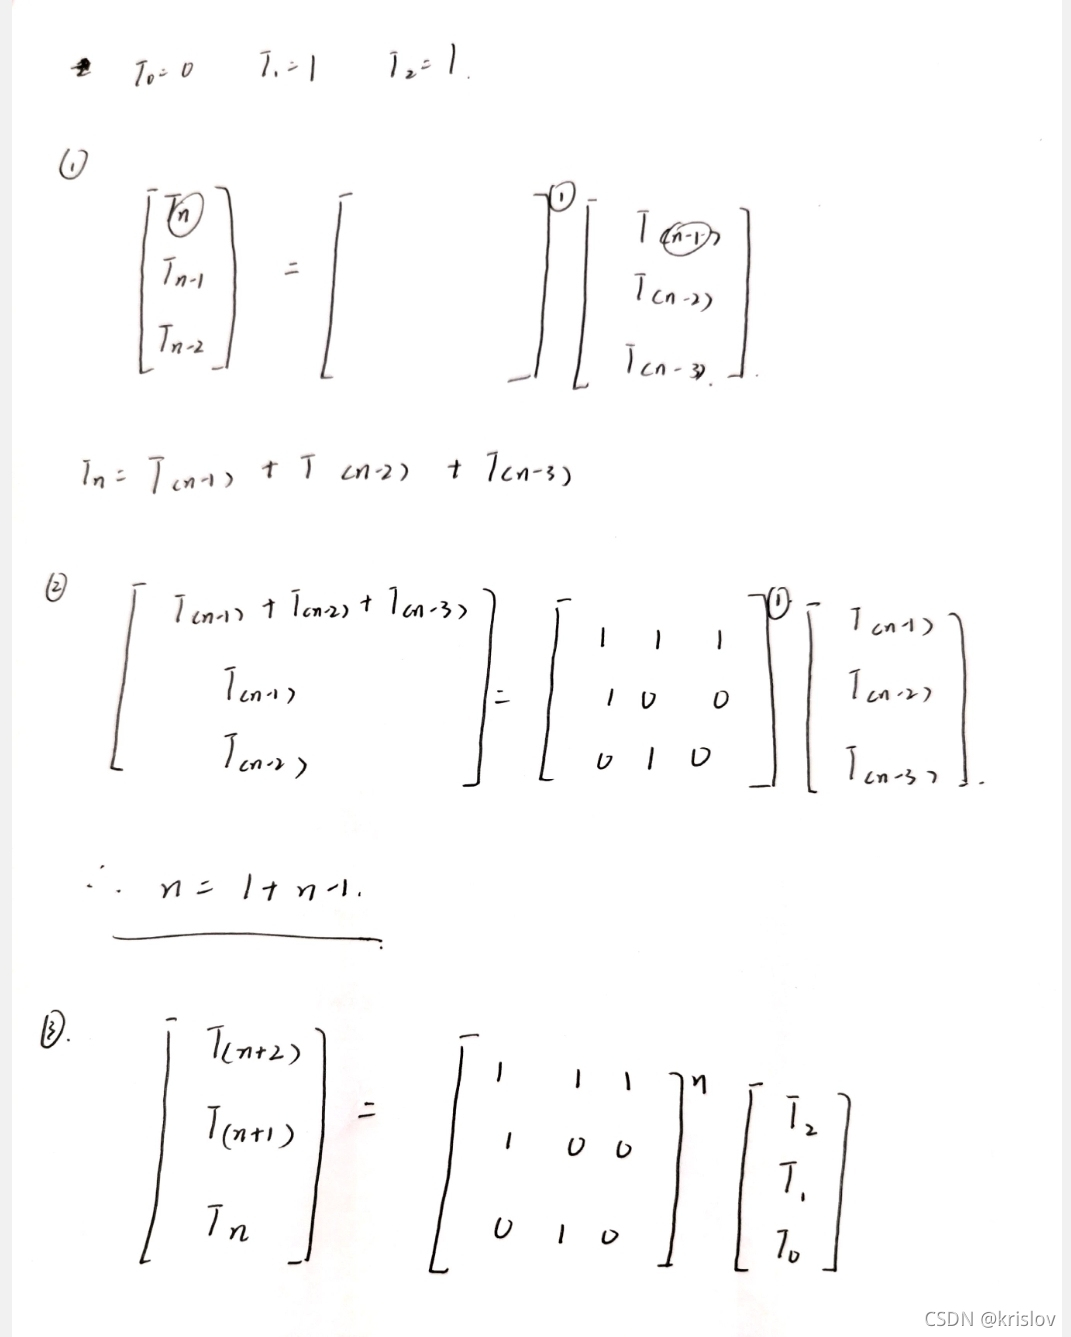 T₀=0 T₁=1 T₂=1.
①
[Tn Tn-1 Tn-2] = [ ]① [T(n-1) T(n-2) T(n-3)].
Tn = T(n-1) + T(n-2) + T(n-3)
②
[T(n-1) + T(n-2) + T(n-3) T(n-1) T(n-2)] = [1 1 1 1 0 0 0 1 0]① [T(n-1) T(n-2) T(n-3)].
∴ n = 1+n-1.
③.
[T(n+2) T(n+1) Tn] = [1 1 1 1 0 0 0 1 0]ⁿ [T₂ T₁ T₀]
CSDN @krislov